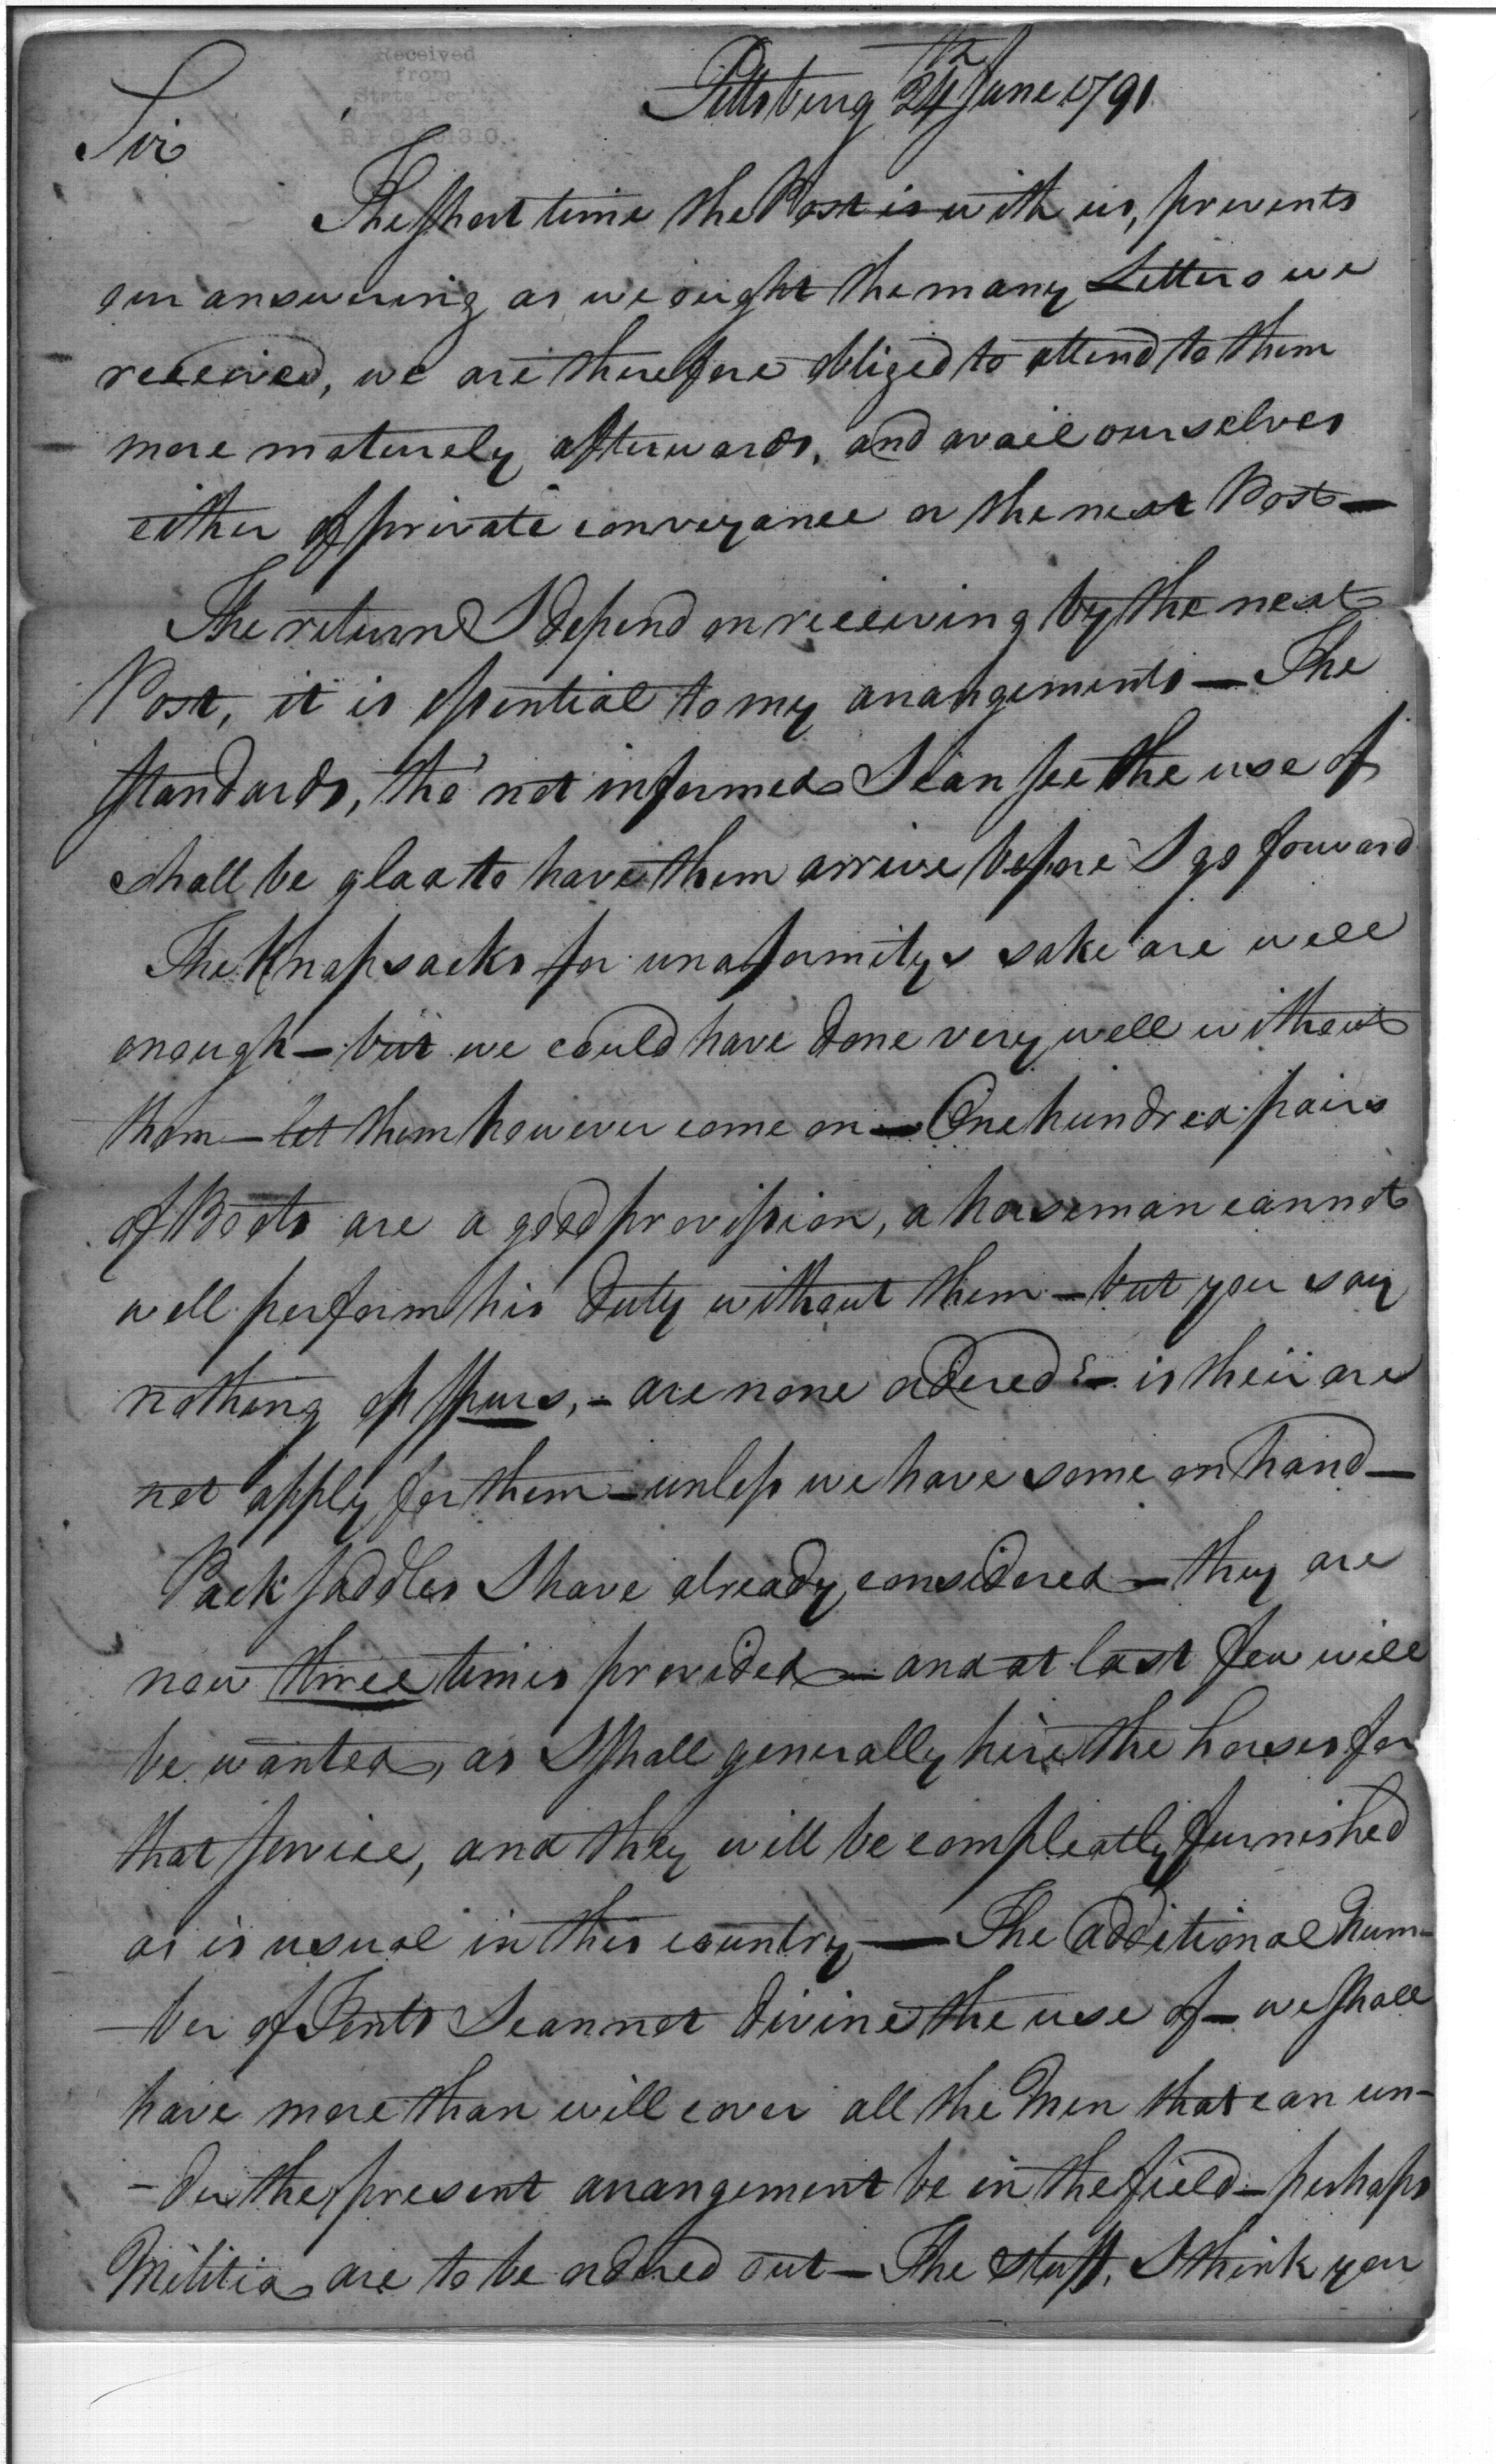 Received
from
Pittsburg 24th June 1791
Sir
The short time the Post is with us, prevents
our answering as we ought the many Letters we
received, we are therefore obliged to attend to them
more maturely afterwards, and avail ourselves
either of private conveyance or the next Post —
The return I depend on receiving by the next
Post, it is essential to my arangements — The
standards, tho' not informed I can see the use of
shall be glad to have them arrive before I go forward
The Knapsacks for unaformitys sake are well
enough — but we could have done very well without
them — let them however come on — One hundred pairs
of Boots are a good provission, a horseman cannot
well perform his duty without them — but you say
nothing of spurs, — are none ordered? — is their are
not apply for them — unless we have some on hand —
Pack saddles I have already considered — they are
now three times provided — and at last few will
be wanted, as I shall generally hire the horses for
that service, and they will be compleatly furnished
as is usual in this country — The additional Num-
-ber of Tents I cannot divine the use of — we shall
have more than will cover all the Men that can un-
-der the present arangement be in the field — perhaps
Militia are to be ordered out — The stuff, I think you